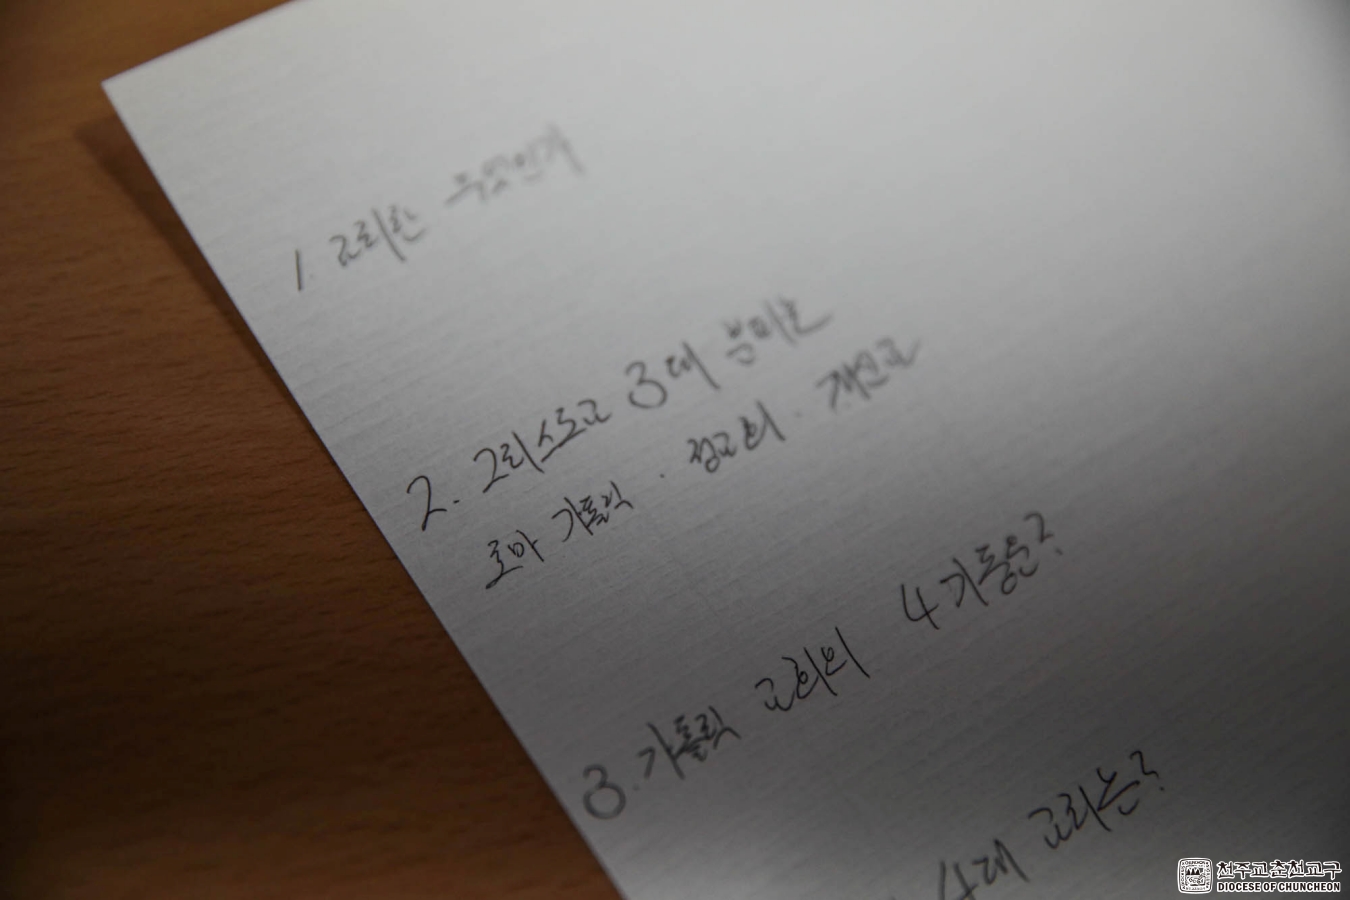 1. 교리란 무엇인가
2. 그리스도교 3대
로마 가톨릭 · 정교회 · 개신교
3. 가톨릭 교회의 4기둥은?
4대 교리는?
천주교춘천교구
DIOCESE OF CHUNCHEON